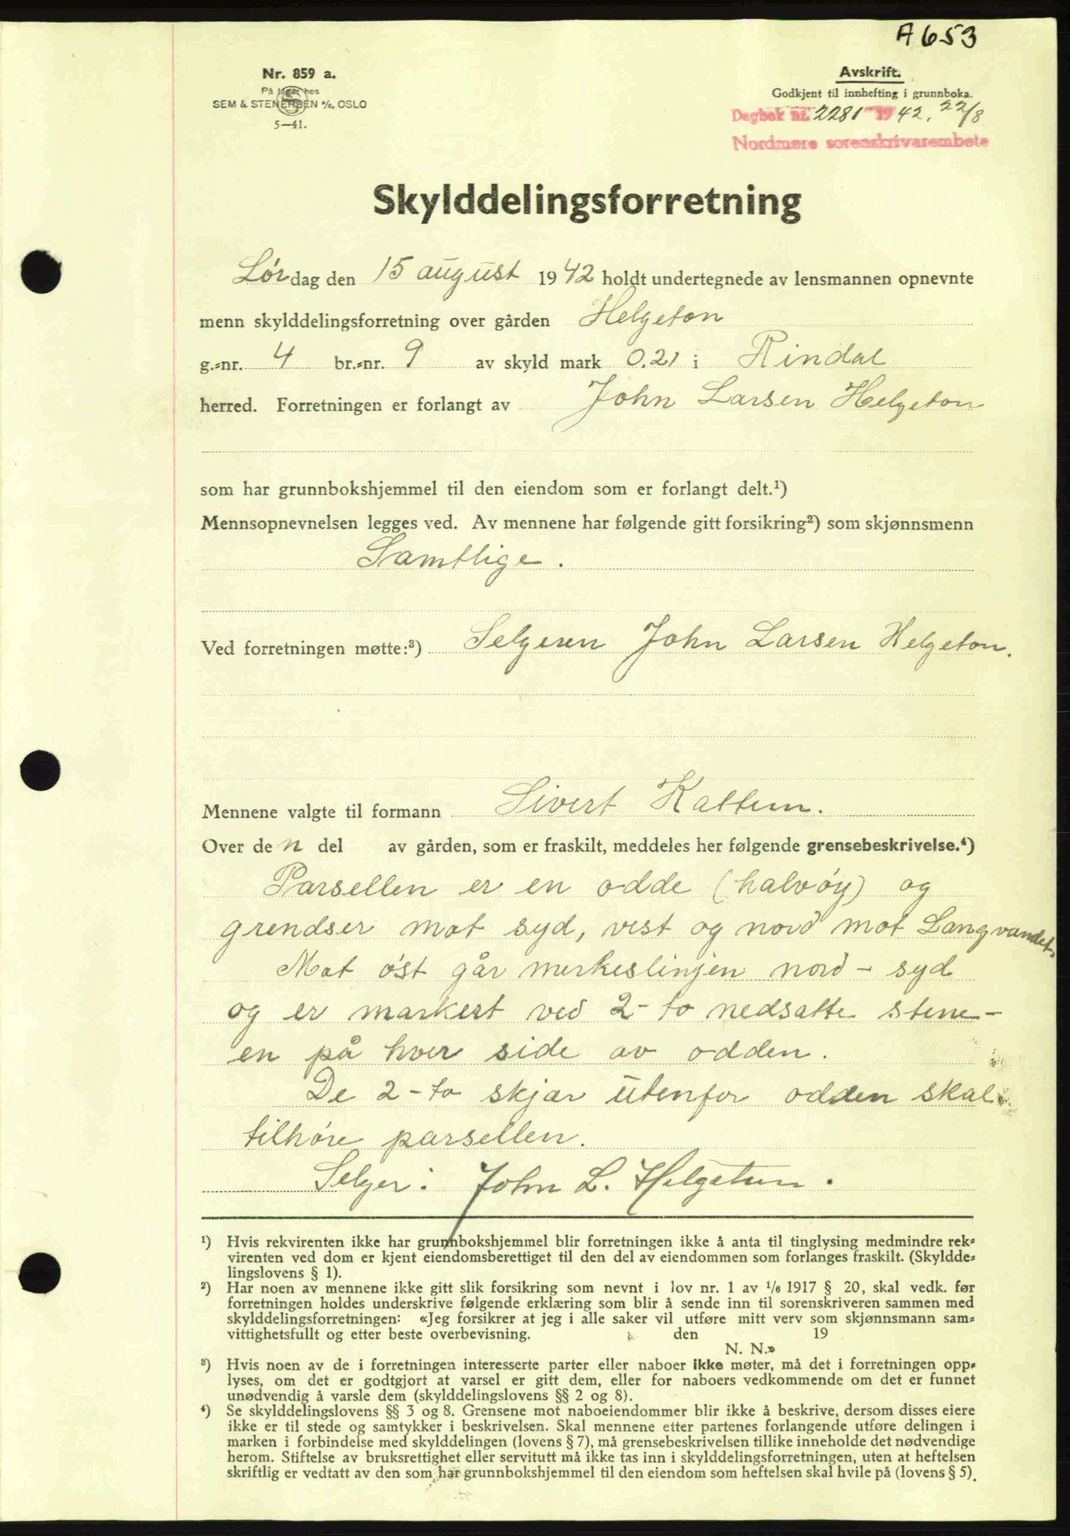 A653
Nr. 859 a.
På lager hos
SEM & STENERSEN A/S, OSLO
5-41.
Avskrift.
Godkjent til innhefting i grunnboka.
Dagbok nr. 2281 1942, 22/8
Nordmøre sorenskrivarembete
Skylddelingsforretning
Lørdag den 15 august 1942 holdt undertegnede av lensmannen opnevnte
menn skylddelingsforretning over gården Helgeton
g.-nr. 4 br.-nr. 9 av skyld mark 0.21 i Rindal
herred. Forretningen er forlangt av John Larsen Helgeton
som har grunnbokshjemmel til den eiendom som er forlangt delt.¹)
Mennsopnevnelsen legges ved. Av mennene har følgende gitt forsikring²) som skjønnsmenn
Samtlige.
Ved forretningen møtte:³) Selgeren John Larsen Helgeton.
Mennene valgte til formann Sivert Kattem.
Over den del av gården, som er fraskilt, meddeles her følgende grensebeskrivelse.⁴)
Parsellen er en odde (halvøy) og
grendser mot syd, vest og nord mot Langvandet.
Mot øst går merkeslinjen nord - syd
og er markert ved 2-to nedsatte stene -
en på hver side av odden.
De 2-to skjær utenfor odden skal
tilhøre parsellen.
Selger: John L. Helgetun.
¹) Hvis rekvirenten ikke har grunnbokshjemmel blir forretningen ikke å anta til tinglysing medmindre rek-
virenten ved dom er kjent eiendomsberettiget til den del av eiendommen som forlanges fraskilt. (Skyldde-
lingslovens § 1).
²) Har noen av mennene ikke gitt slik forsikring som nevnt i lov nr. 1 av 1/6 1917 § 20, skal vedk. før
forretningen holdes underskrive følgende erklæring som blir å sende inn til sorenskriveren sammen med
skylddelingsforretningen: «Jeg forsikrer at jeg i alle saker vil utføre mitt verv som skjønnsmann sam-
vittighetsfullt og etter beste overbevisning. den 19
N. N.»
³) Hvis noen av de i forretningen interesserte parter eller naboer ikke møter, må det i forretningen opp-
lyses, om det er godtgjort at varsel er gitt dem, eller for naboers vedkommende om det er funnet
unødvendig å varsle dem (skylddelingslovens §§ 2 og 8).
⁴) Se skylddelingslovens §§ 3 og 8. Grensene mot naboeiendommer blir ikke å beskrive, dersom disses eiere
ikke er til stede og samtykker i beskrivelsen. Skal mennene etter partenes forlangende utføre delingen i
marken i forbindelse med skylddelingen (lovens § 7), må grensebeskrivelsen tillike inneholde det nødvendige
herom. Stiftelse av bruksrettighet eller servitutt må ikke tas inn i skylddelingsforretningen, uten at heftelsen
skriftlig er vedtatt av den som har grunnbokshjemmel til den eiendom som heftelsen skal hvile på (lovens § 5).